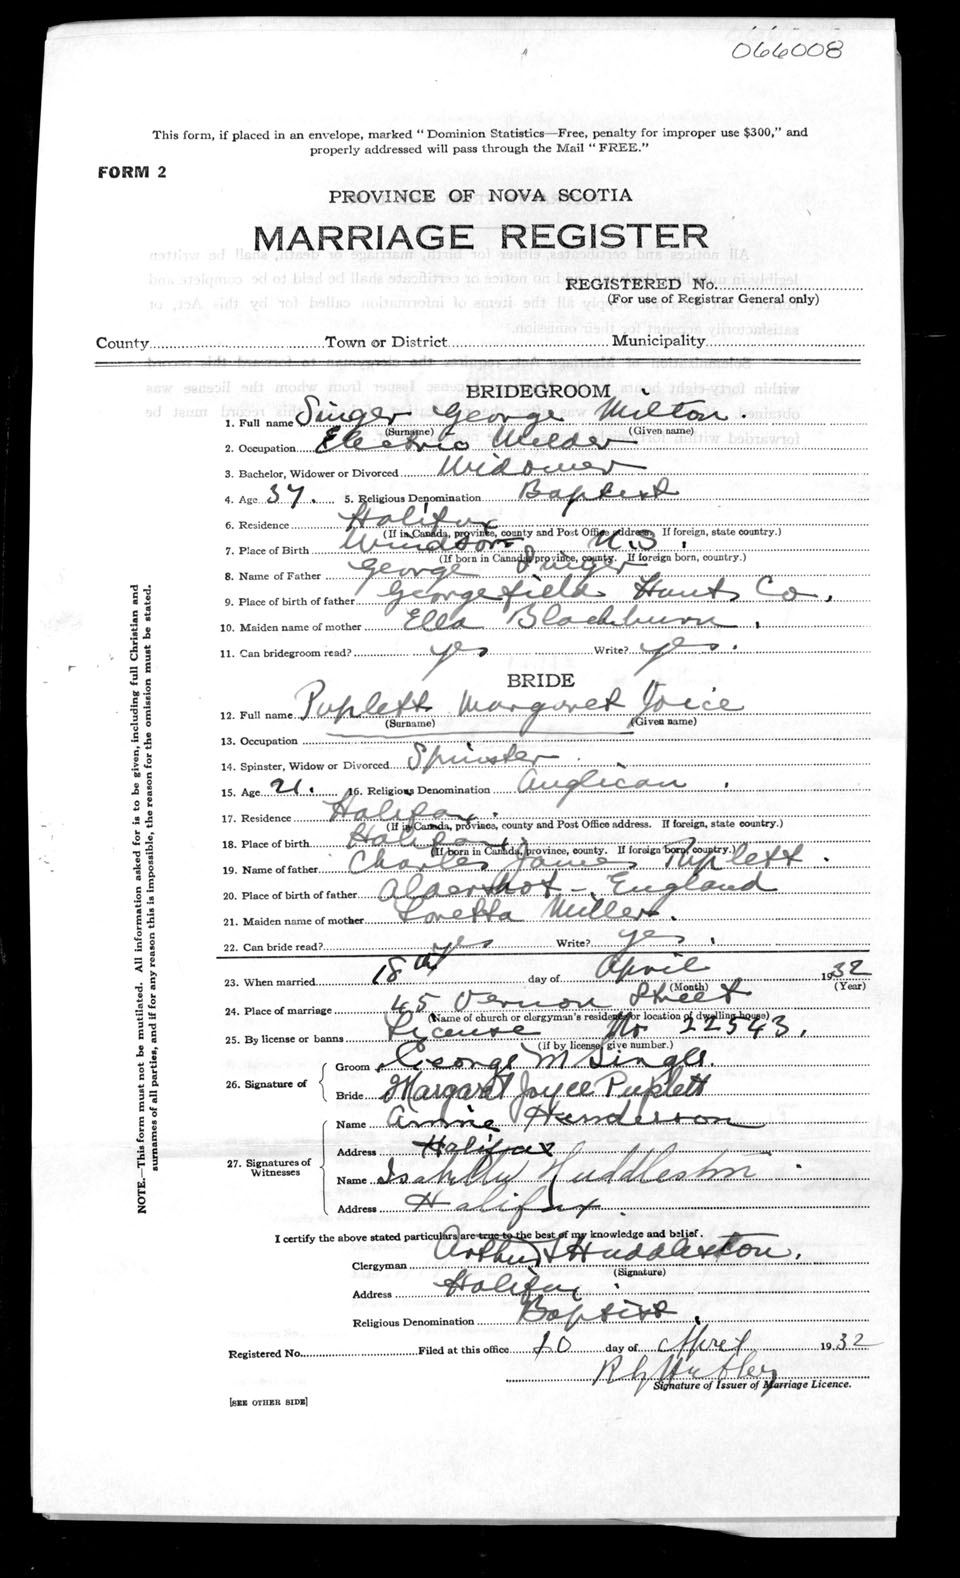 066008
This form, if placed in an envelope, marked “ Dominion Statistics—Free, penalty for improper use $300,” and
properly addressed will pass through the Mail “ FREE.”
FORM 2
PROVINCE OF NOVA SCOTIA
MARRIAGE REGISTER
REGISTERED No.
(For use of Registrar General only)
County Town or District Municipality
BRIDEGROOM
1. Full name Singer George Milton.
(Surname) (Given name)
2. Occupation Electric Welder
3. Bachelor, Widower or Divorced Widower
4. Age 37. 5. Religious Denomination Baptist
6. Residence Halifax
(If in Canada, province, county and Post Office address. If foreign, state country.)
7. Place of Birth Windsor N.S.
(If born in Canada, province, county. If foreign born, country.)
8. Name of Father George Singer
9. Place of birth of father Georgefield Hants Co.
10. Maiden name of mother Ella Blackburn.
11. Can bridegroom read? yes Write? yes.
BRIDE
12. Full name Puplett Margaret Joice
(Surname) (Given name)
13. Occupation
14. Spinster, Widow or Divorced Spinster
15. Age 21. 16. Religious Denomination Anglican.
17. Residence Halifax.
(If in Canada, province, county and Post Office address. If foreign, state country.)
18. Place of birth Halifax
(If born in Canada, province, county. If foreign born, country.)
19. Name of father Charles James Puplett.
20. Place of birth of father Aldershot - England
21. Maiden name of mother Loretta Miller.
22. Can bride read? yes Write? yes.
23. When married 18th day of April 1932
(Month) (Year)
24. Place of marriage 45 Vernon Street
(Name of church or clergyman's residence or location of dwelling house)
25. By license or banns License No 22543.
(If by license, give number.)
26. Signature of
Groom George M Singer.
Bride Margaret Joyce Puplett
27. Signatures of Witnesses
Name Annie Henderson
Address Halifax
Name Isabella Huddleston.
Address Halifax.
I certify the above stated particulars are true to the best of my knowledge and belief.
Clergyman Arthur Huddleston.
(Signature)
Address Halifax.
Religious Denomination Baptist.
Registered No. Filed at this office 20 day of April 1932
Signature of Issuer of Marriage Licence.
[SEE OTHER SIDE]
NOTE.—This form must not be mutilated. All information asked for is to be given, including full Christian and
surnames of all parties, and if for any reason this is impossible, the reason for the omission must be stated.